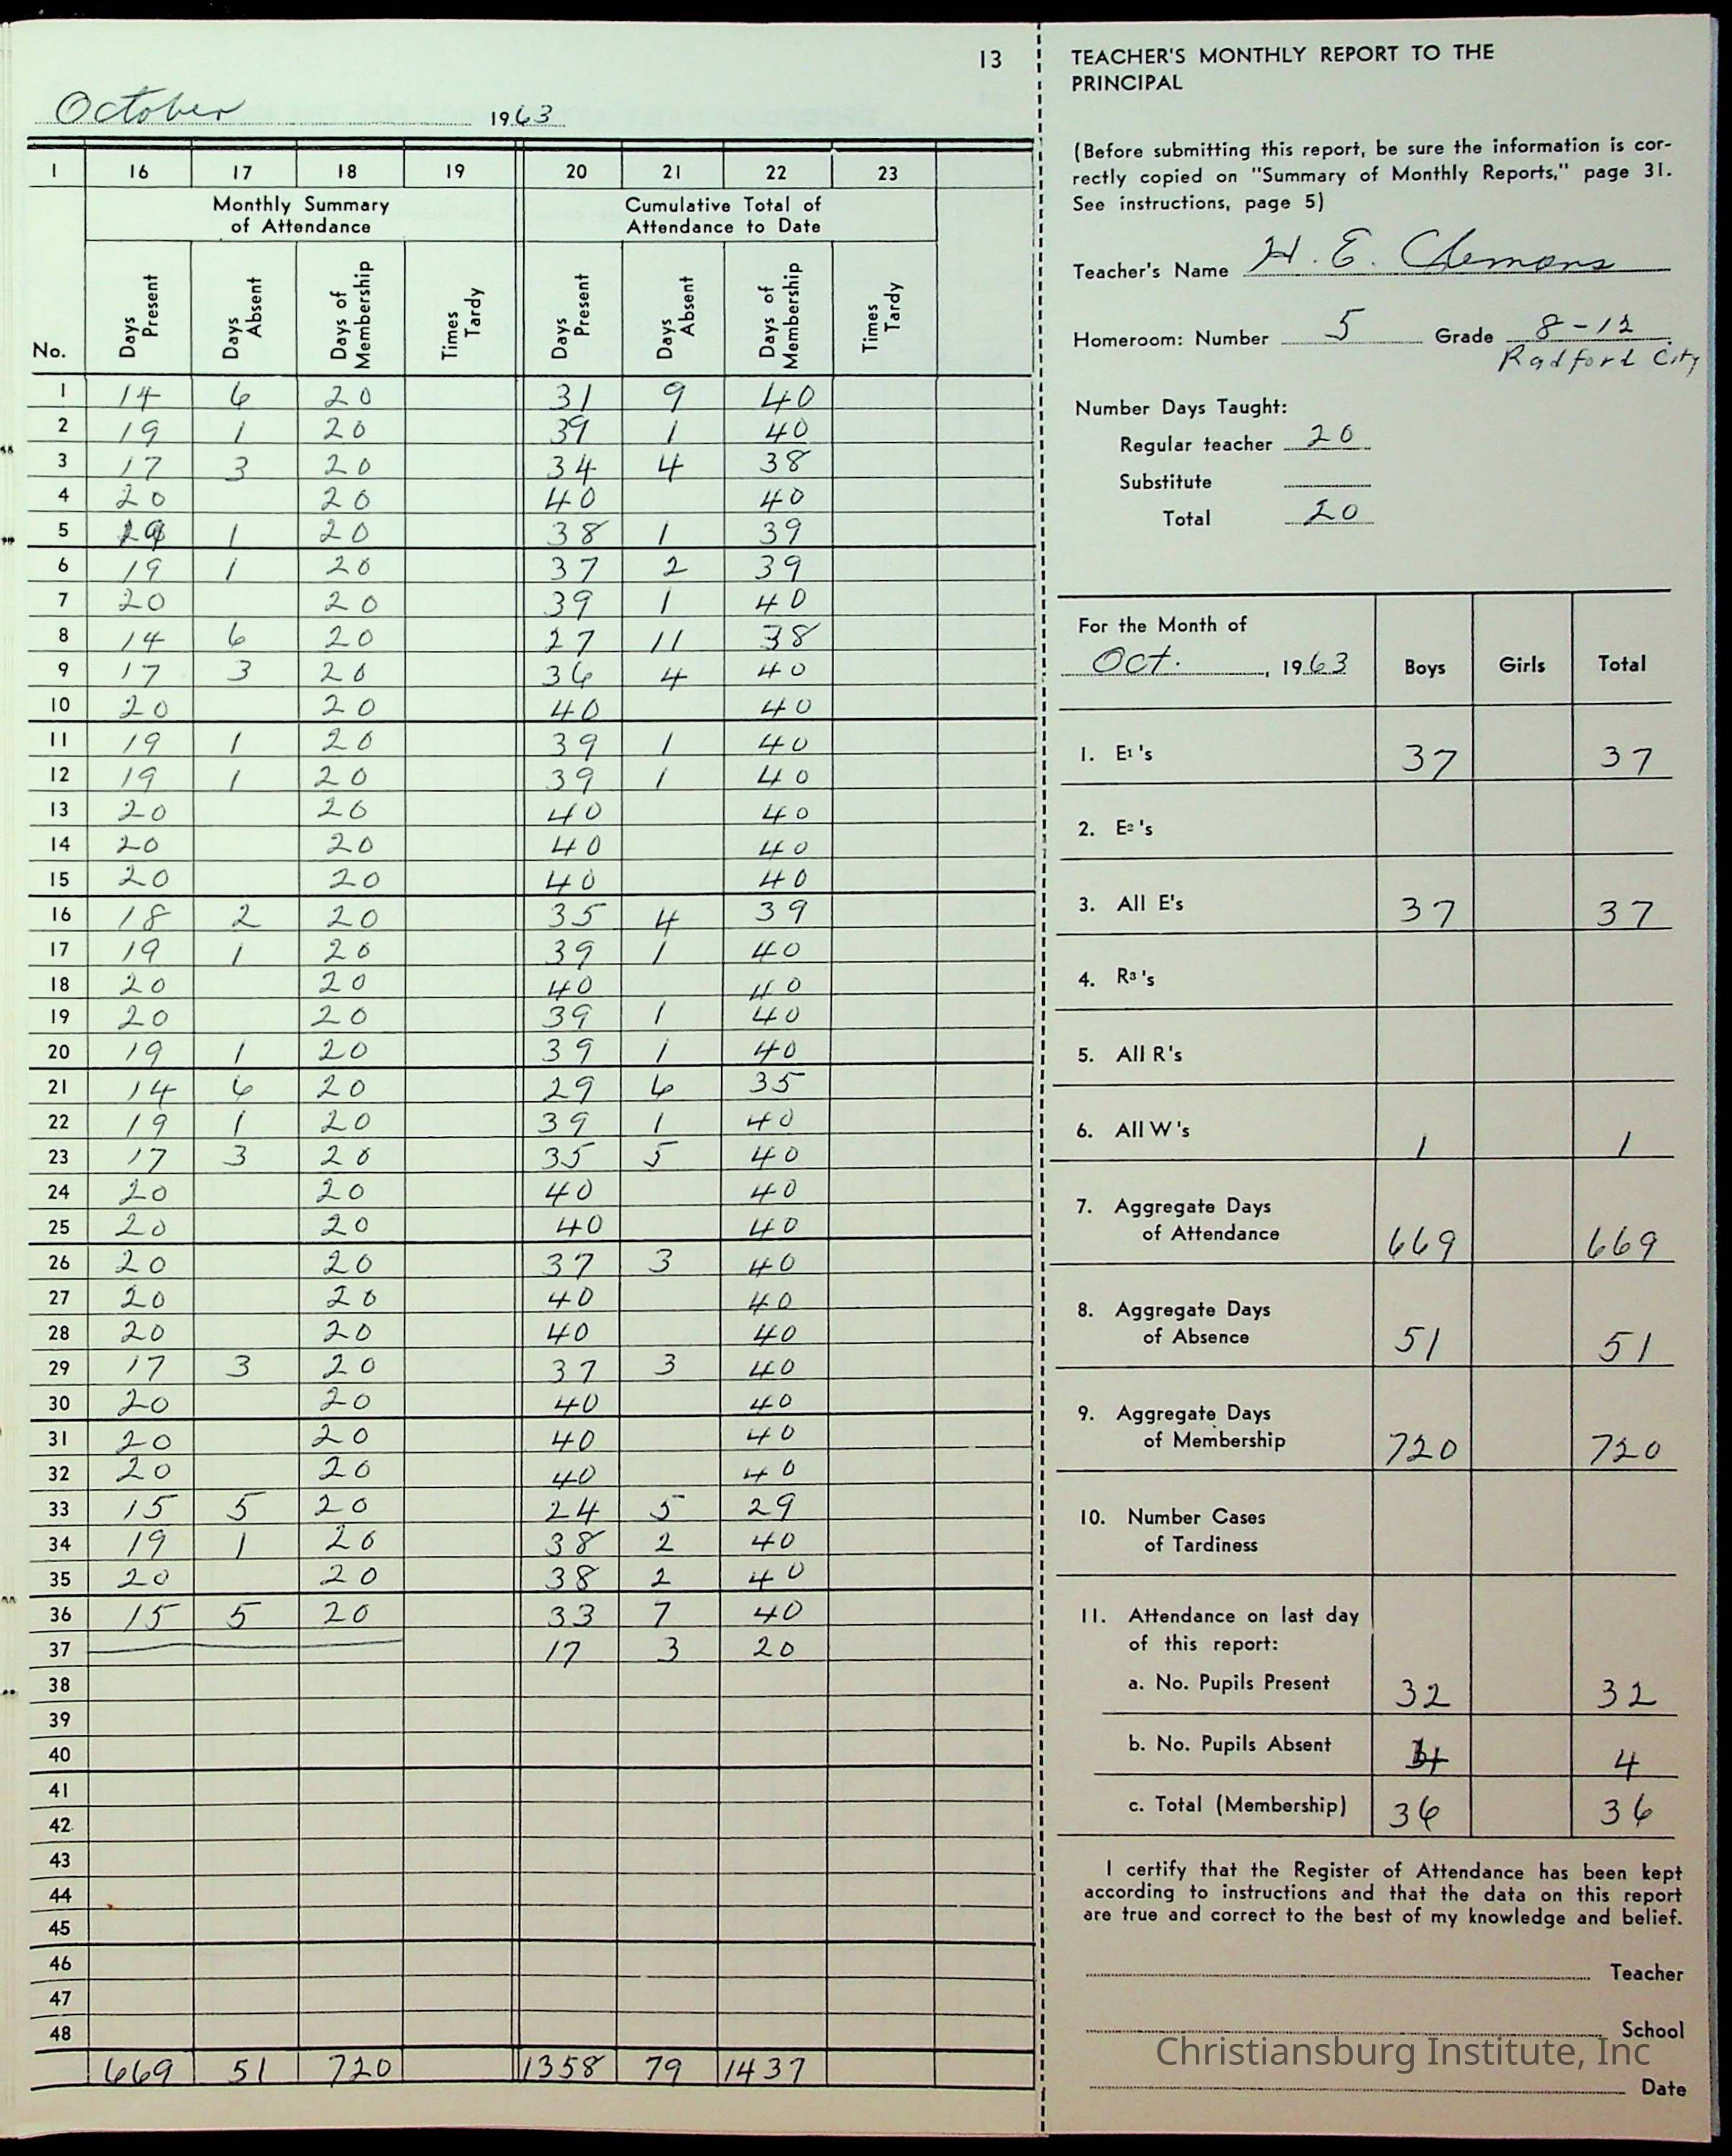 13
October 1963
1 16 17 18 19 20 21 22 23
Monthly Summary of Attendance Cumulative Total of Attendance to Date
No. Days Present Days Absent Days of Membership Times Tardy Days Present Days Absent Days of Membership Times Tardy
1 14 6 20 31 9 40
2 19 1 20 39 1 40
3 17 3 20 34 4 38
4 20 20 40 40
5 19 1 20 38 1 39
6 19 1 20 37 2 39
7 20 20 39 1 40
8 14 6 20 27 11 38
9 17 3 20 36 4 40
10 20 20 40 40
11 19 1 20 39 1 40
12 19 1 20 39 1 40
13 20 20 40 40
14 20 20 40 40
15 20 20 40 40
16 18 2 20 35 4 39
17 19 1 20 39 1 40
18 20 20 40 40
19 20 20 39 1 40
20 19 1 20 39 1 40
21 14 6 20 29 6 35
22 19 1 20 39 1 40
23 17 3 20 35 5 40
24 20 20 40 40
25 20 20 40 40
26 20 20 37 3 40
27 20 20 40 40
28 20 20 40 40
29 17 3 20 37 3 40
30 20 20 40 40
31 20 20 40 40
32 20 20 40 40
33 15 5 20 24 5 29
34 19 1 20 38 2 40
35 20 20 38 2 40
36 15 5 20 33 7 40
37 17 3 20
38
39
40
41
42
43
44
45
46
47
48
669 51 720 1358 79 1437
TEACHER'S MONTHLY REPORT TO THE
PRINCIPAL
(Before submitting this report, be sure the information is cor-
rectly copied on "Summary of Monthly Reports," page 31.
See instructions, page 5)
Teacher's Name H. E. Clemons
Homeroom: Number 5 Grade 8-12
Radford City
Number Days Taught:
Regular teacher 20
Substitute
Total 20
For the Month of
Oct. , 1963 Boys Girls Total
1. E1's 37 37
2. E2's
3. All E's 37 37
4. R3's
5. All R's
6. All W's 1 1
7. Aggregate Days
of Attendance 669 669
8. Aggregate Days
of Absence 51 51
9. Aggregate Days
of Membership 720 720
10. Number Cases
of Tardiness
11. Attendance on last day
of this report:
a. No. Pupils Present 32 32
b. No. Pupils Absent 4 4
c. Total (Membership) 36 36
I certify that the Register of Attendance has been kept
according to instructions and that the data on this report
are true and correct to the best of my knowledge and belief.
Teacher
School
Christiansburg Institute, Inc
Date